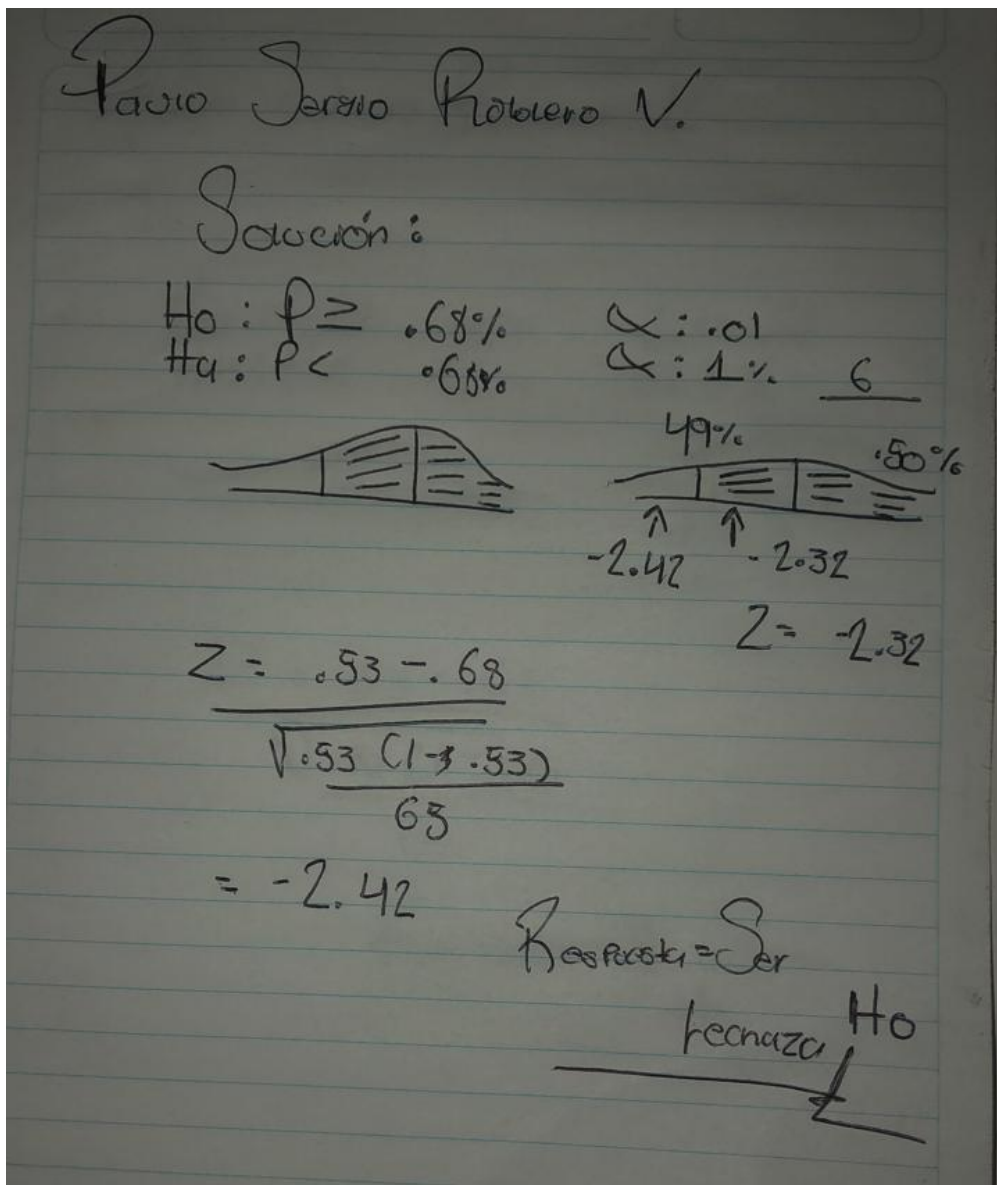 Pavio Sergio Roblero V.
Solución :
Ho : P ≥ .68%
Ha : P < .68%
α : .01
α : 1% 6
49% .50%
-2.42 -2.32
Z = -2.32
Z = .53 - .68
√.53 (1- .53)
63
= -2.42
Respuesta = Ser
rechaza Ho